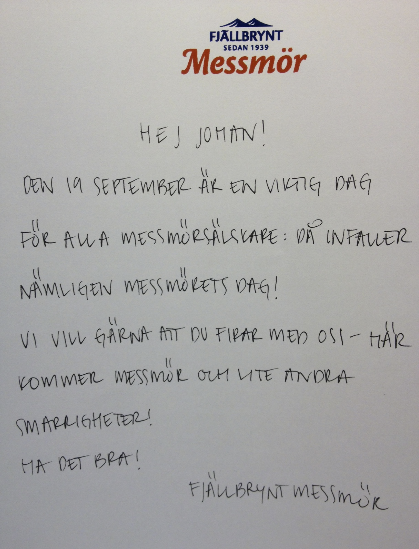 FJÄLLBRYNT
SEDAN 1939
Messmör
HEJ JOHAN!
DEN 19 SEPTEMBER ÄR EN VIKTIG DAG
FÖR ALLA MESSMÖRSÄLSKARE: DÅ INFALLER
NÄMLIGEN MESSMÖRETS DAG!
VI VILL GÄRNA ATT DU FIRAR MED OSS - HÄR
KOMMER MESSMÖR OCH LITE ANDRA
SMARRIGHETER!
HA DET BRA!
FJÄLLBRYNT MESSMÖR